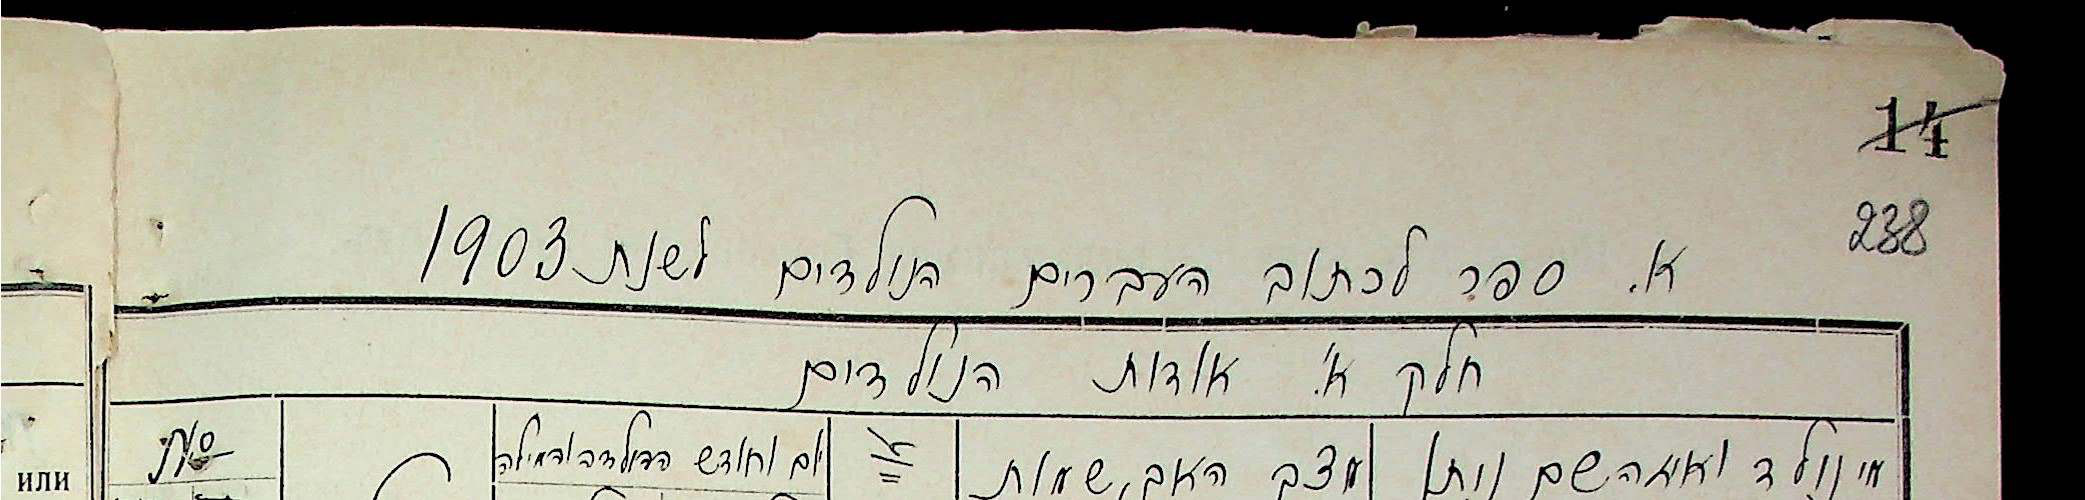 14
238
א. ספר לכתוב העברים הנולדים לשנת 1903
חלק א'. אודות הנולדים
מי נולד ואיזה שם ניתן
מצב האב, שמות
יום וחודש הולדה והמילה
или